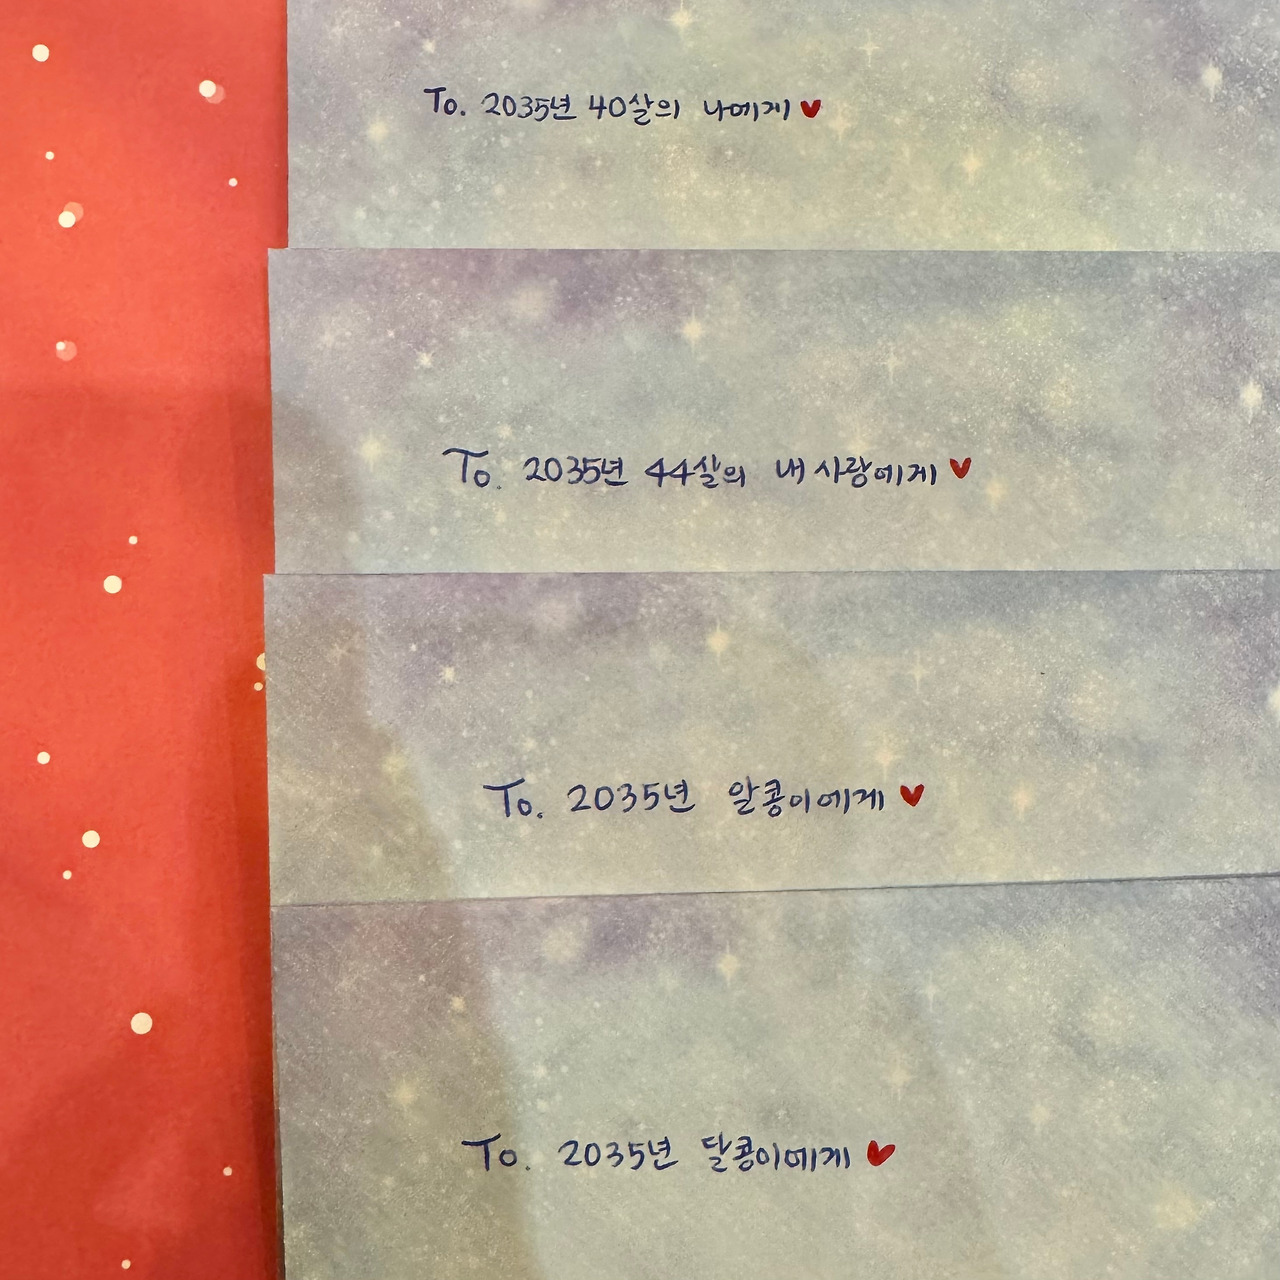 To. 2035년 40살의 나에게♥
To. 2035년 44살의 내 사랑에게♥
To. 2035년 알콩이에게♥
To. 2035년 달콩이에게♥